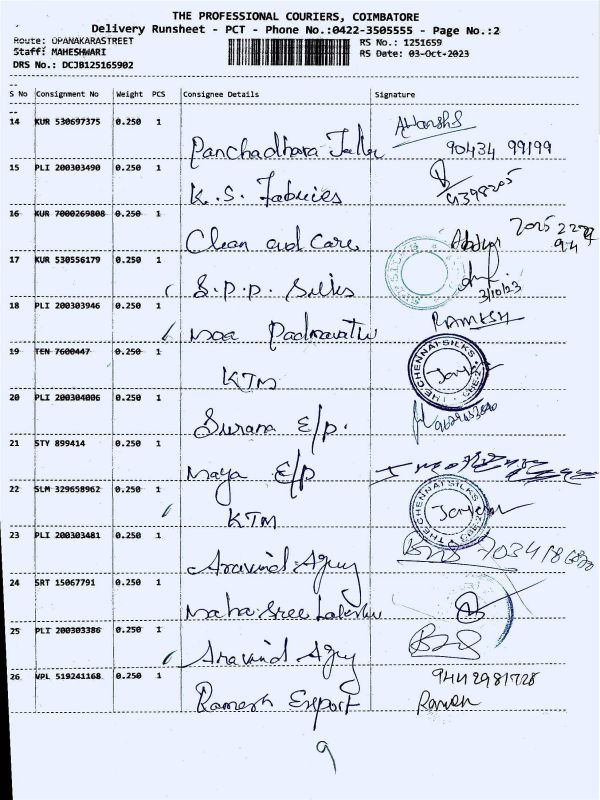 THE PROFESSIONAL COURIERS, COIMBATORE
Delivery Runsheet - PCT - Phone No.:0422-3505555 - Page No.:2
Route: OPANAKARASTREET RS No.: 1251659
Staff: MAHESHWARI RS Date: 03-Oct-2023
DRS No.: DCJB125165902
S No Consignment No Weight PCS Consignee Details Signature
14 KUR 530697375 0.250 1
Panchadhara 90434 99199
15 PLI 200303490 0.250 1
K.S. Fabrics
16 KUR 7000269808 0.250 1
Clean and Care
17 KUR 530556179 0.250 1
S.P.P. Silks 3/10/23
18 PLI 200303946 0.250 1 RAMESH
Maa Padmavathi
19 TEN 7600447 0.250 1 THE CHENNAI SILKS
KTM
20 PLI 200304006 0.250 1
Surana E/p.
21 STY 899414 0.250 1
Maya E/p
22 SLM 329658962 0.250 1 THE CHENNAI SILKS
KTM
23 PLI 200303481 0.250 1
Aravind Agny
24 SRT 15067791 0.250 1
Maha Sree
25 PLI 200303386 0.250 1
Aravind Agny
26 VPL 519241168 0.250 1
Ramesh Export Ramesh
9